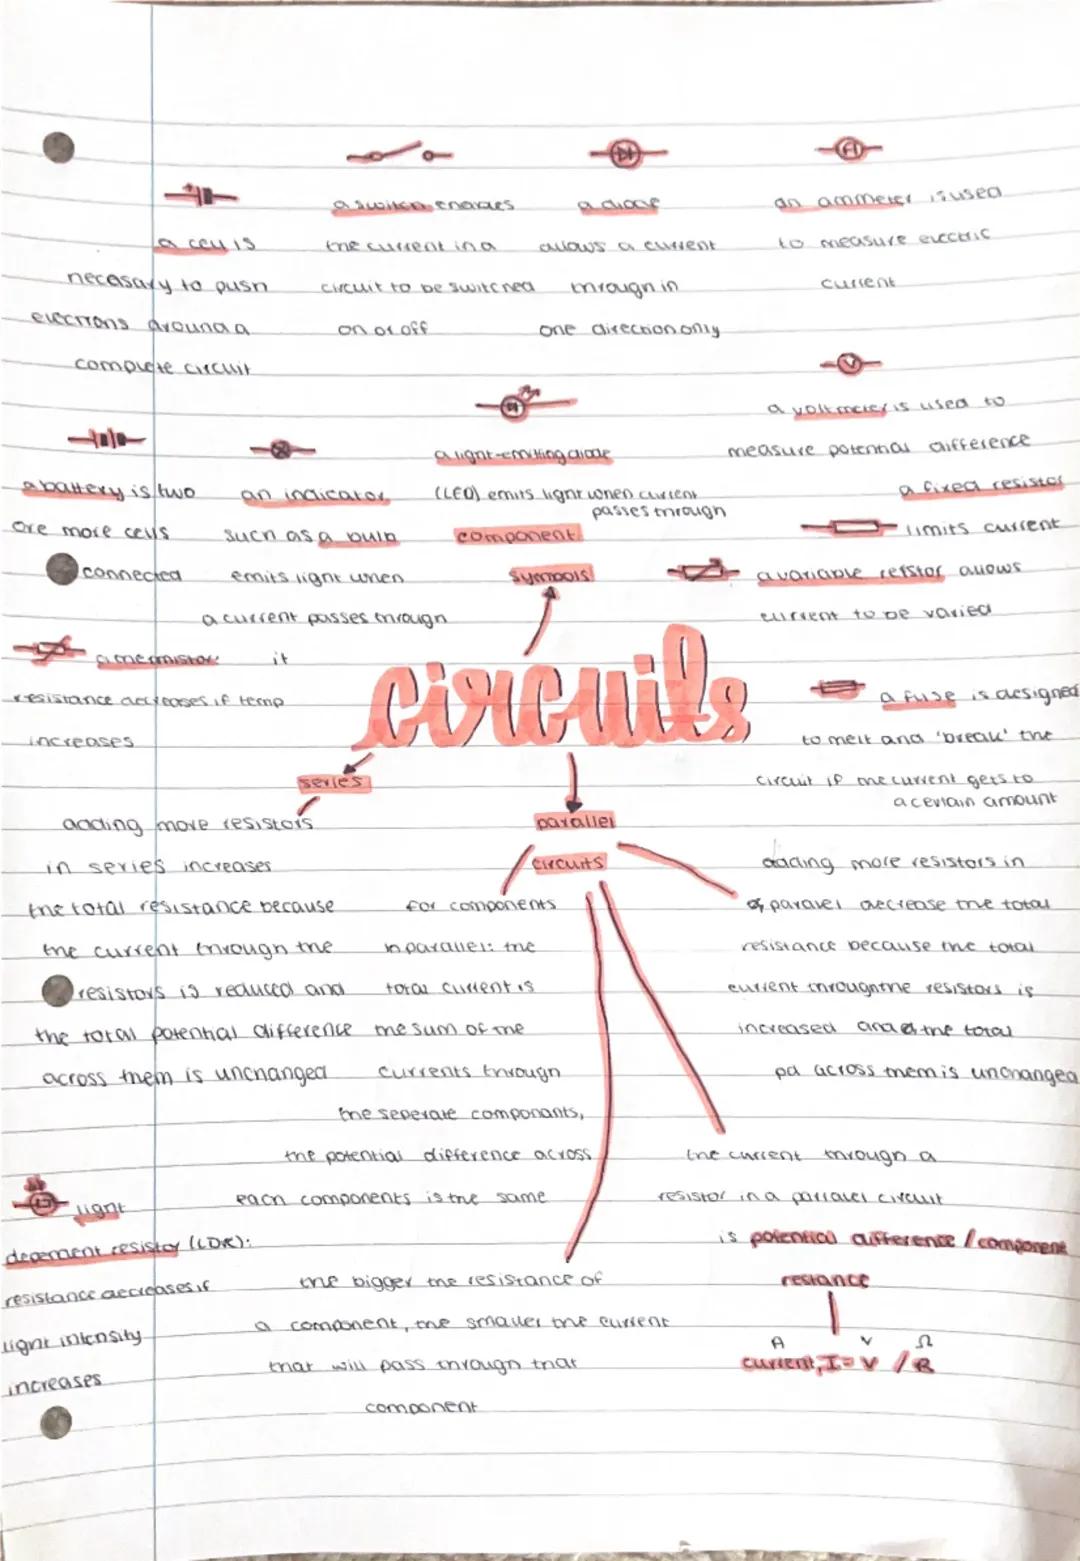 a cell is
necesary to push
electrons around a
complete circuit
a switch enables
the current in a
circuit to be switched
on or off
a diode
allows a current
through in
one direction only
A
an ammeter is used
to measure electric
current
V
a voltmeter is used to
measure potential difference
a battery is two
ore more cells
connected
an indicator
such as a bulb
emits light when
a current passes through
a light-emitting diode
(LED) emits light when current
passes through
component
symbols
a fixed resistor
limits current
a variable reistor allows
current to be varied
a thermistor it
resistance decreases if temp
increases
circuits
a fuse is designed
to melt and 'break' the
circuit if the current gets to
a certain amount
series
adding more resistors
in series increases
the total resistance because
the current through the
resistors is reduced and
the total potential difference
across them is unchanged
parallel
circuits
for components
in parallel: the
total current is
the sum of the
currents through
the seperate componants,
the potential difference across
each components is the same
adding more resistors in
parallel decrease the total
resistance because the total
current through the resistors is
increased and the total
pd across them is unchanged
light
depement resistor (LDR):
resistance decreases if
light intensity
increases
the bigger the resistance of
a component, the smaller the current
that will pass through that
component
the current through a
resistor in a parralel circuit
is potential difference / component
restance
A V Ω
current, I = V / R